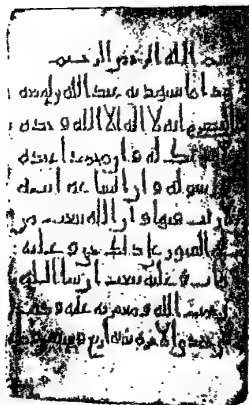 بسم الله الرحمن الرحيم
هذا ما شهد به عبد الله بن لهيعة
الحضرمي انه لا اله الا الله وحده
لا شريك له و ان محمدا عبده
و رسوله و ان الساعة اتية
لا ريب فيها و ان الله يبعث من
في القبور على ذلك حي و عليه
مات و عليه يبعث ان شا الله
رحمت الله و عليه و كتب
في سنة اربع و سبعين